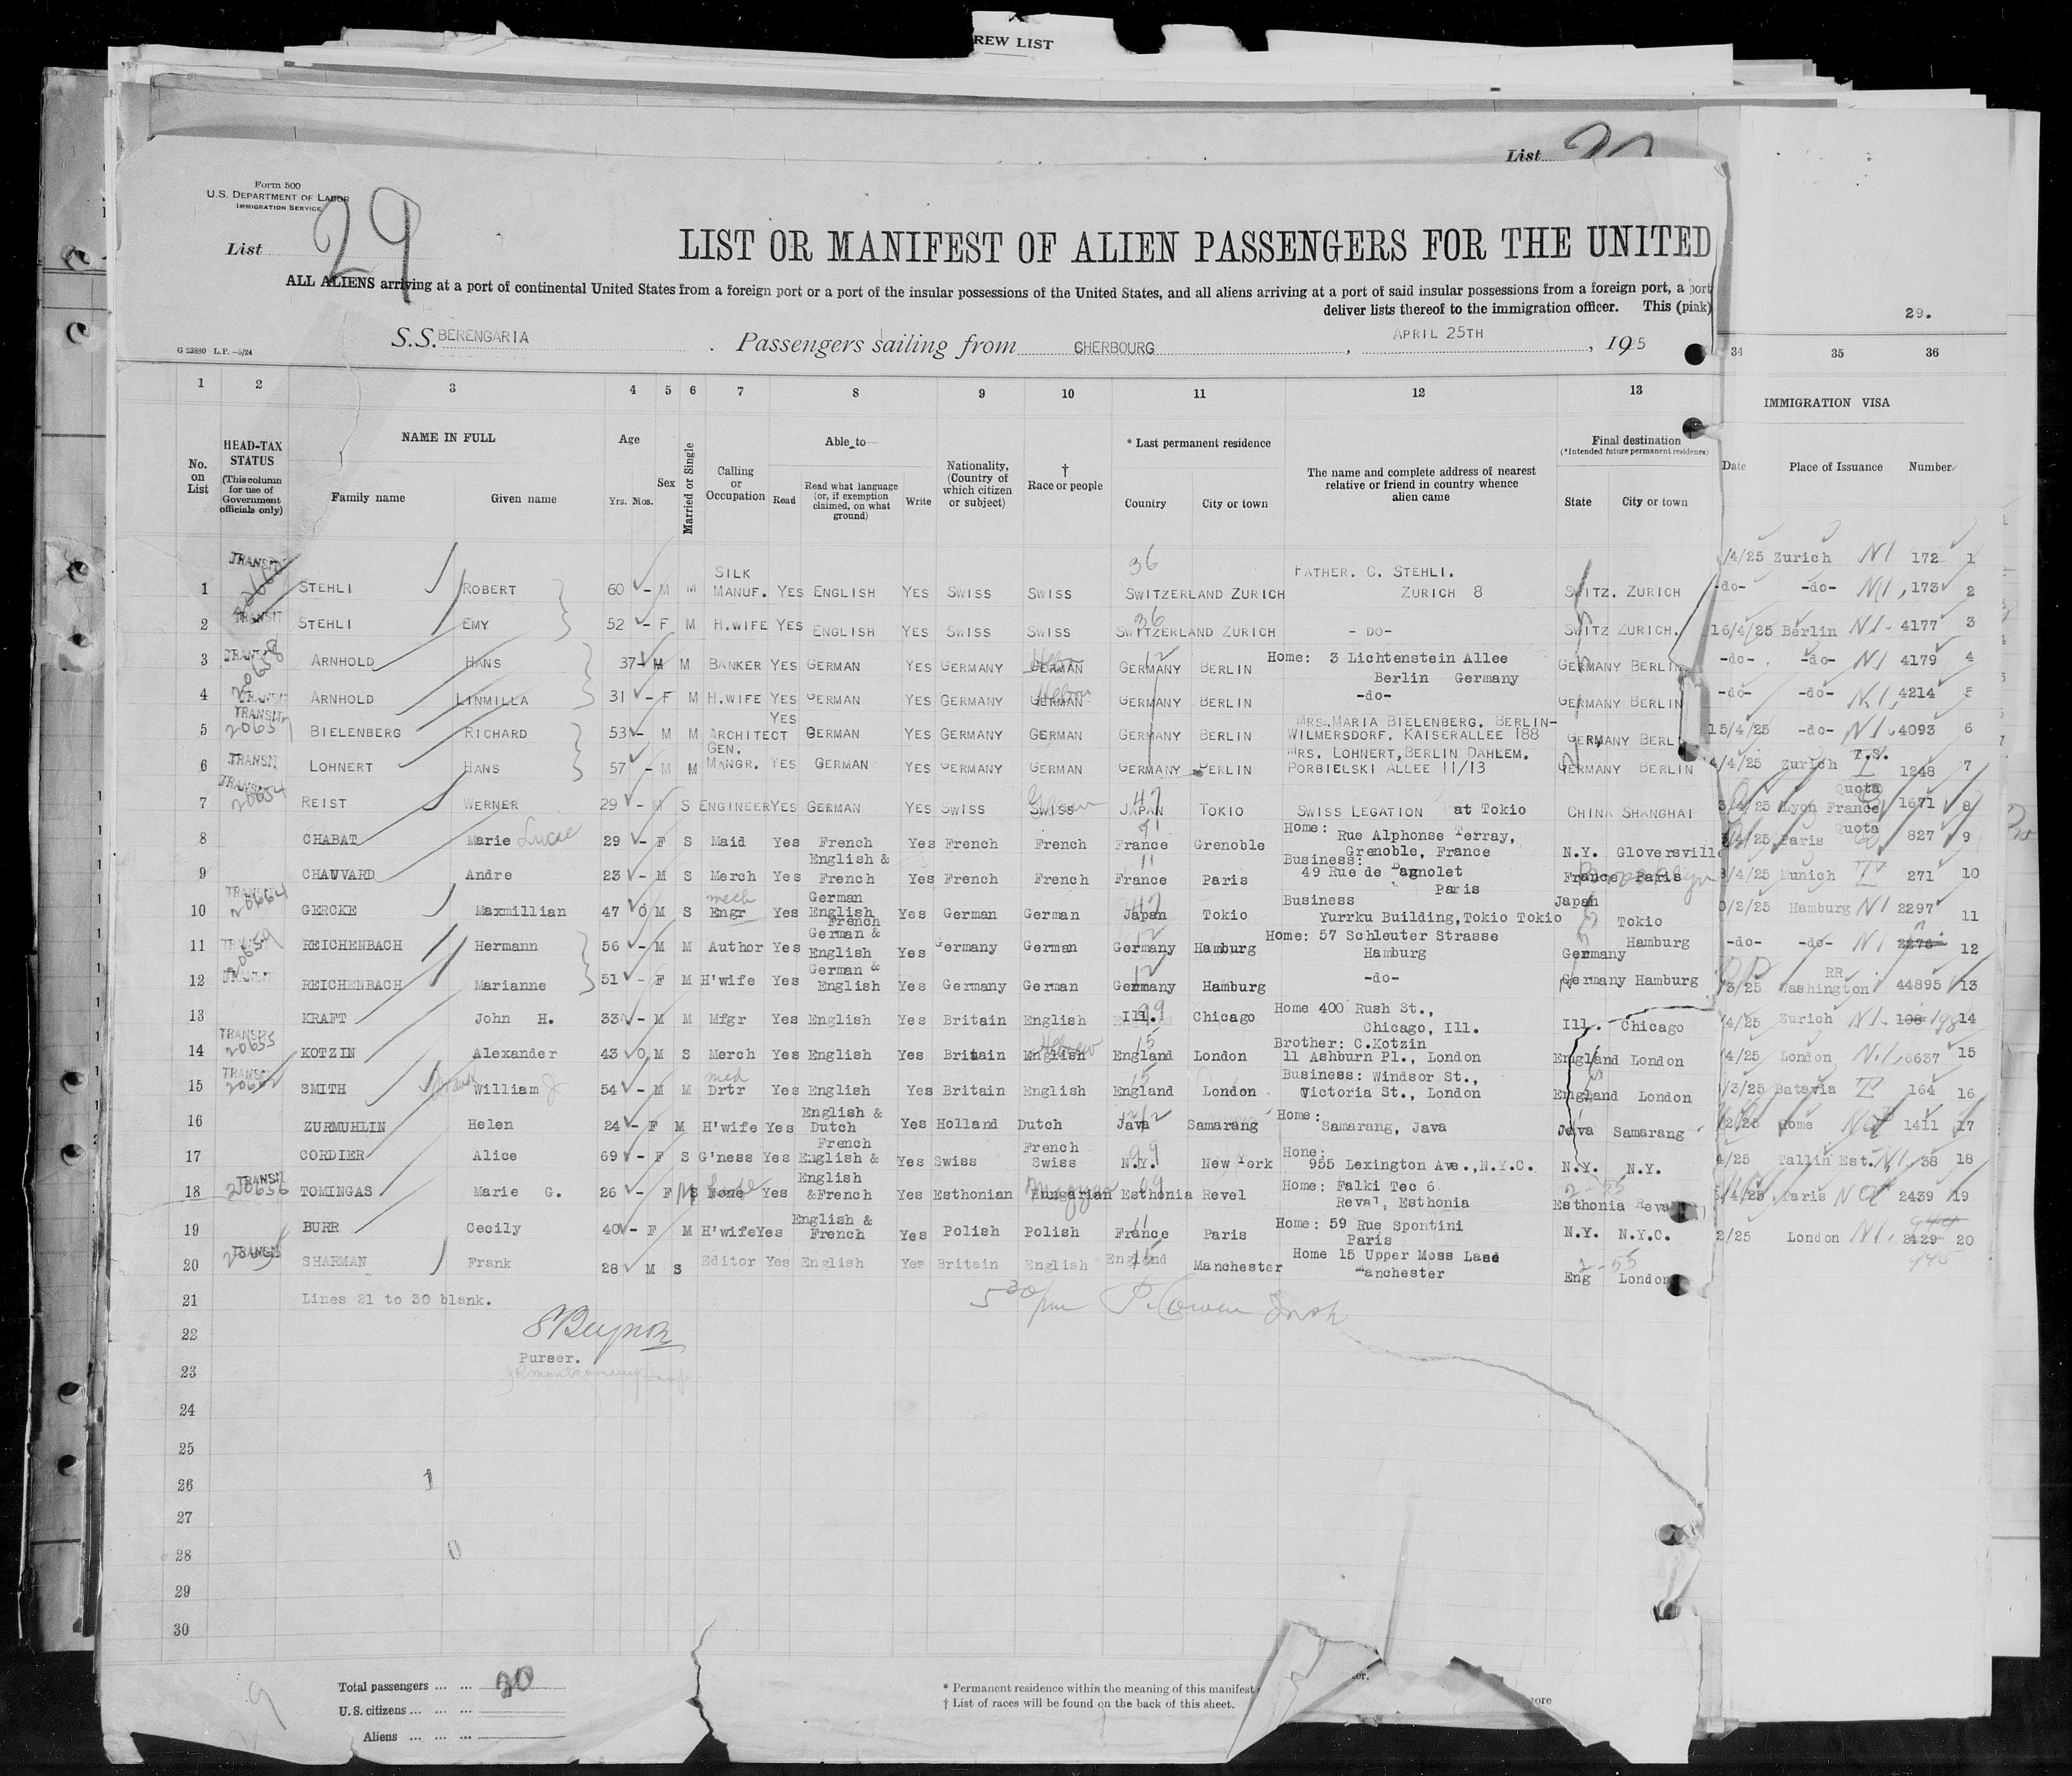 REW LIST
List
Form 500
U.S. DEPARTMENT OF LABOR
IMMIGRATION SERVICE
List 29
LIST OR MANIFEST OF ALIEN PASSENGERS FOR THE UNITED
ALL ALIENS arriving at a port of continental United States from a foreign port or a port of the insular possessions of the United States, and all aliens arriving at a port of said insular possessions from a foreign port, a port
deliver lists thereof to the immigration officer. This (pink)
29.
S.S. BERENGARIA . Passengers sailing from CHERBOURG , APRIL 25TH , 1925
G 23880 L.P.—5/24
1 2 3 4 5 6 7 8 9 10 11 12 13 34 35 36
No. on List
HEAD-TAX STATUS (This column for use of Government officials only)
NAME IN FULL
Family name Given name
Age
Yrs. Mos.
Sex
Married or Single
Calling or Occupation
Able to—
Read
Read what language (or, if exemption claimed, on what ground)
Write
Nationality, (Country of which citizen or subject)
† Race or people
* Last permanent residence
Country City or town
The name and complete address of nearest relative or friend in country whence alien came
Final destination
(*Intended future permanent residence)
State City or town
IMMIGRATION VISA
Date Place of Issuance Number
1 TRANSIT STEHLI ROBERT 60 - M M SILK MANUF. YES ENGLISH YES SWISS SWISS 36 SWITZERLAND ZURICH FATHER. C. STEHLI. ZURICH 8 SWITZ. ZURICH
/4/25 Zurich NI 172 1
2 TRANSIT STEHLI EMY 52 - F M H.WIFE YES ENGLISH YES SWISS SWISS 36 SWITZERLAND ZURICH -DO- SWITZ ZURICH.
-do- -do- NI, 173 2
3 TRANSIT 20658 ARNHOLD HANS 37- M M BANKER YES GERMAN YES GERMANY GERMAN 12 GERMANY BERLIN Home: 3 Lichtenstein Allee Berlin Germany GERMANY BERLIN
16/4/25 Berlin NI. 4177 3
4 TRANSIT ARNHOLD LINMILLA 31 - F M H.WIFE YES GERMAN YES GERMANY Hebrew GERMAN GERMANY BERLIN -do- GERMANY BERLIN
-do- -do- NI 4179 4
5 TRANSIT 20657 BIELENBERG RICHARD 53 - M M ARCHITECT YES GERMAN YES GERMANY GERMAN GERMANY BERLIN MRS. MARIA BIELENBERG. BERLIN-WILMERSDORF. KAISERALLEE 188 GERMANY BERLI
-do- -do- NI, 4214 5
6 TRANSIT LOHNERT HANS 57 - M M GEN. MANGR. YES GERMAN YES GERMANY GERMAN GERMANY BERLIN MRS. LOHNERT, BERLIN DAHLEM. PORBIELSKI ALLEE 11/13 GERMANY BERLIN
15/4/25 -do- NI. 4093 6
7 TRANSIT 20654 REIST WERNER 29 - M S ENGINEER YES GERMAN YES SWISS SWISS 47 JAPAN TOKIO SWISS LEGATION at Tokio CHINA SHANGHAI
4/4/25 Zurich T.S. 1248 7
8 CHABAT Marie Lucie 29 - F S Maid Yes French Yes French French France Grenoble Home: Rue Alphonse Terray, Grenoble, France N.Y. Gloversville
3/4/25 Lyon France Quota 1671 8
9 CHAUVARD Andre 23 - M S Merch Yes English & French Yes French French 11 France Paris Business: 49 Rue de Bagnolet Paris France Paris
/4/25 Paris Quota 827 9
10 TRANSIT 20664 GERCKE Maxmillian 47 0 M S mech Engr Yes German English French Yes German German 47 Japan Tokio Business Yurrku Building, Tokio Tokio Japan Tokio
/4/25 Munich 271 10
11 TRANSIT 20659 REICHENBACH Hermann 56 - M M Author Yes German & English Yes Germany German 12 Germany Hamburg Home: 57 Schleuter Strasse Hamburg Germany Hamburg
/2/25 Hamburg NI 2297 11
12 TRANSIT REICHENBACH Marianne 51 - F M H'wife Yes German & English Yes Germany German 12 Germany Hamburg -do- Germany Hamburg
-do- -do- NI 2276 12
13 KRAFT John H. 33 - M M Mfgr Yes English Yes Britain English 99 Ill. Chicago Home 400 Rush St., Chicago, Ill. Ill. Chicago
/3/25 RR Washington 44895 13
14 TRANSIT 20653 KOTZIN Alexander 43 0 M S Merch Yes English Yes Britain Hebrew English 15 England London Brother: C.Kotzin 11 Ashburn Pl., London England London
/4/25 Zurich NI. 108 198 14
15 TRANSIT SMITH William J 54 - M M med Drtr Yes English Yes Britain English 15 England London Business: Windsor St., Victoria St., London England London
/4/25 London N.I, 6637 15
16 ZURMUHLIN Helen 24 - F M H'wife Yes English & Dutch Yes Holland Dutch Java Samarang Home: Samarang, Java Java Samarang
/3/25 Batavia 164 16
17 CORDIER Alice 69 - F S G'ness Yes French English & Yes Swiss French Swiss 99 N.Y. New York Home: 955 Lexington Ave., N.Y.C. N.Y. N.Y.
/2/25 Rome NQ 1411 17
18 TRANSIT 20656 TOMINGAS Marie G. 26 - F M S None Yes English &French Yes Esthonian Magyar Hungarian Esthonia Revel Home: Falki Tec 6 Reval, Esthonia 2-55 Esthonia Reval
4/25 Tallin Est. NI, 38 18
19 BURR Cecily 40 - F M H'wife Yes English & French Yes Polish Polish 11 France Paris Home: 59 Rue Spontini Paris N.Y. N.Y.C.
/4/25 Paris NQ 2439 19
20 TRANSIT SHARMAN Frank 28 M S Editor Yes English Yes Britain English 15 England Manchester Home 15 Upper Moss Lane Manchester 2-55 Eng London
2/25 London NI. 940 2129 20
945
21 Lines 21 to 30 blank. 5 30/pm P. Cowen Insp
22
Purser.
23
24
25
26
27
28
29
30
Total passengers ... ... 20
U.S. citizens ... ... ...
Aliens ... ... ...
* Permanent residence within the meaning of this manifest
† List of races will be found on the back of this sheet.
or.
more